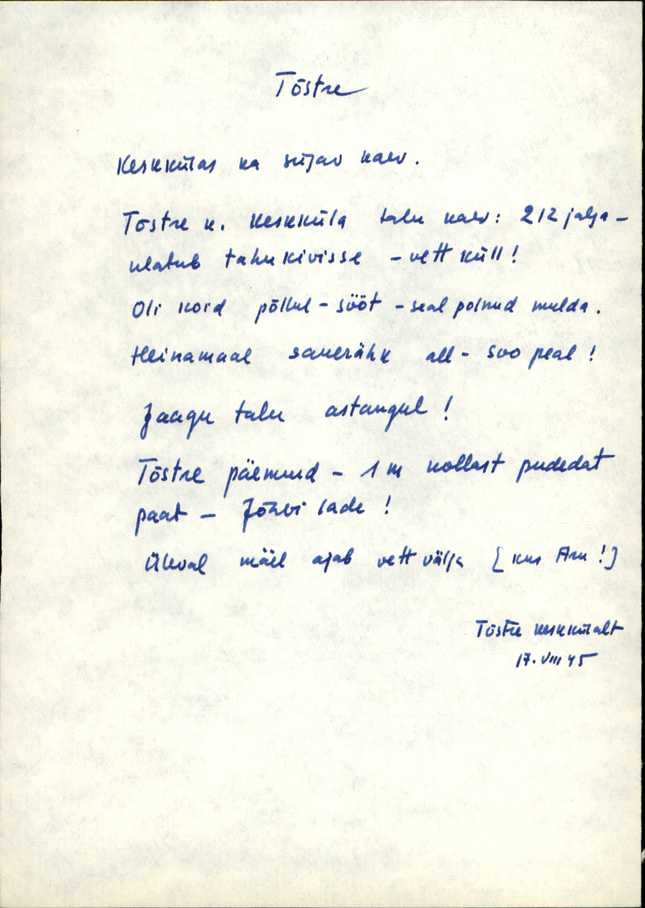 Tõstre
Keskkülas ka sügav kaev.
Tõstre k. Keskküla talu kaev: 212 jalga -
ulatub tahukivisse - vett küll!
Oli kord põllul - sööt - seal polnud mulda.
Heinamaal sauerähk all - soo peal!
Jaagu talu astangul!
Tõstre päemurd - 1 m kollast pudedat
paat - Jõhvi lade!
Üleval mäel ajab vett välja [kus Aru!]
Tõstre keskkülalt
17. VIII 45